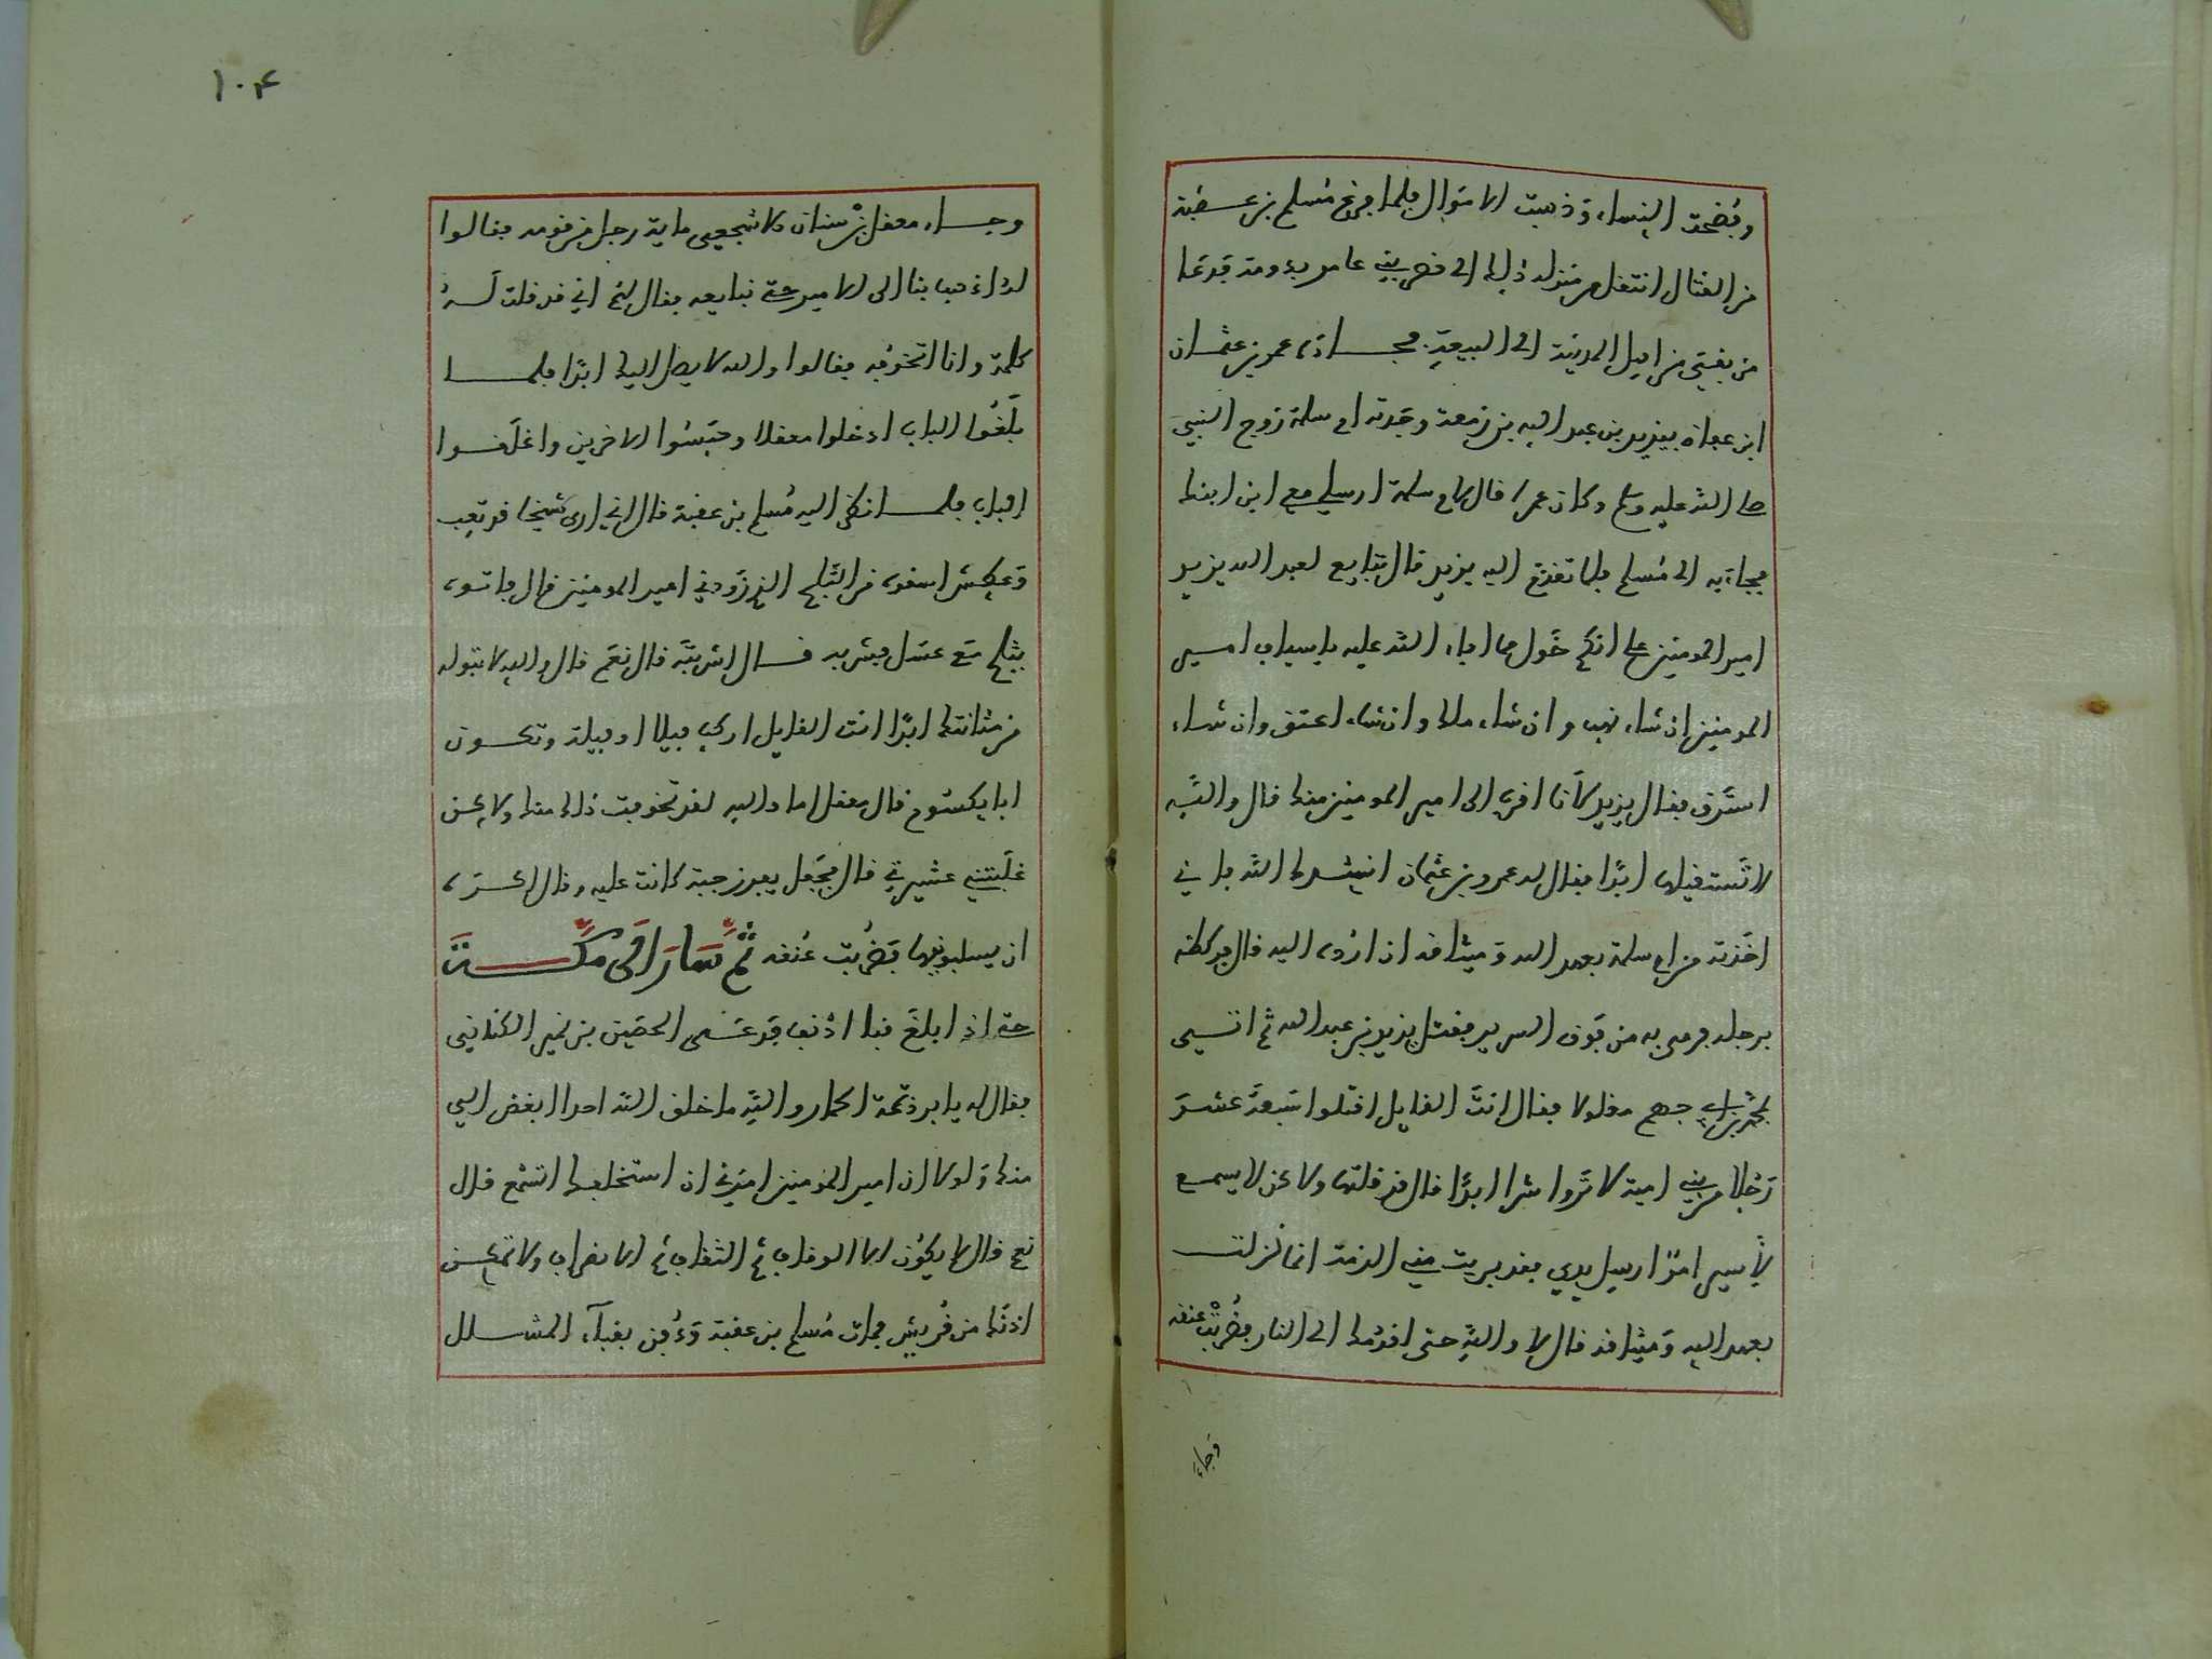 وفُضحت النساء وَذهبت الاموَال فلما فرغ مُسلم بن عقبة
من القتال انتقل من منزله ذلك الى قصر بني عامر بدومة فدعَا
من بقي من اهل المدينة الى البيعةِ فجاء عمرو بن عثمان
ابن عفان بيزيد بن عبد الله بن زمعة وجَدته ام سلمة زوج النبي
صلى الله عليه وسلم وكان عمرا قال لام سلمة ارسلي معي ابن ابنتك
فجاء به الى مُسلم فلما تقدم اليه يزيد قال تبايع لعبد الله يزيد
امير المومنين على انكم خَول مما افاء الله عليه باسياف امير
المومنين ان شاء نهب وان شاء ملك وان شاء اعتق وان شاء
استرق فقال يزيد لأنا اقرب الى امير المومنين منك قال والله
لا تَستقيلها ابدًا فقال له عمرو بن عثمان انشدك الله فاني
اخَذته من ام سلمة بعهد الله وَميثاقه ان ارُده اليه قال فركضه
برجله فرمى به من فَوق السرير فقتل يزيد بن عبد الله ثم اتي
بمحمد بن ابي جهم مغلولا فقال انتَ القايل اقتلوا سَبعةَ عشَر
رَجُلا من بني امية لا تَروا شرا ابدًا قال قد قلتها ولاكن لا يسمع
لأسير امرٌ ارسل يدي فقد بريت مني الذمة انما نزلت
بعهد الله وَميثاقه قال لا والله حتى اقدمك الى النار فضُربَتْ عنقه
وَجاء
١٠٤
وجاء معقل بن سنان الاشجعي ماية رجل من قومه فقالوا
له اذهب بنا الى الامير حتى نبايعه فقال لهم اني قد قلت لَهُ
كلمة وانا اتخوفه فقالوا والله لا يصل اليك ابدًا فلما
بلَغُوا الباب ادخلوا معقلا وحبَسُوا الاخرين واغلَقوا
الباب فلما نظر اليه مُسلم بن عقبة قال اني ارى شيخا قد تعب
وَعطش اسقوه من الثلج الذي زَودني امير المومنين قال فاتوه
بثلج مَع عسَل فشربه قال اشربتَ قال نعَم قال والله لا تبوله
من مثانتك ابدًا انت القايل اركب فيلا او فيلة وتكون
ابا يكسُوم قال معقل اما والله لقد تخوفت ذلك منك ولاكن
غلَبتني عشيرتي قال فجَعل يفرز جبة كانت عليه وقال اكره
ان يسلبونيها فضُربت عُنقه ثُمّ سَارَ الَى مَكّــةَ
حتى اذا بلغَ فنا اذنف فدعَى الحصَين بن نمير الكناني
فقال له يا برذعَة الحمار واللهِ ما خلق الله احدا ابغض الي
منك وَلولا ان امير المُومنين امَرني ان استخلفك اتسْمع قال
نعم قال لا يكوُن الا الوقاف ثم الثقاف ثم الانصراف ولا تمكن
اذنُك من قُريش فمات مُسلم بن عقبة وَدُفن بفناء المشلل